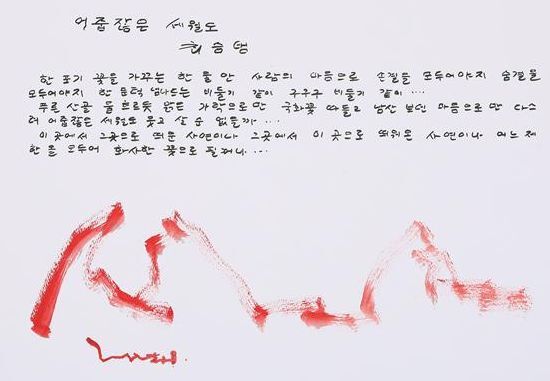 어줍잖은 세월도
최승범
한 포기 꽃을 가꾸는 한 뜰 안 사람의 마음으로 손결을 모두어야지 숨결을
모두어야지 한 문턱 넘나드는 비둘기 같이 구구구 비둘기 같이 ····
푸른 산골 물 흐르듯 맑은 가락으로만 국화꽃 따들고 남산 보던 마음으로만 다스
려 어줍잖은 세월도 웃고 살 순 없을까 ···
이 곳에서 그곳으로 띄운 사연이나 그곳에서 이 곳으로 띄워온 사연이나 어느 제
한 를 모두어 화사한 꽃으로 필꺼나. ···